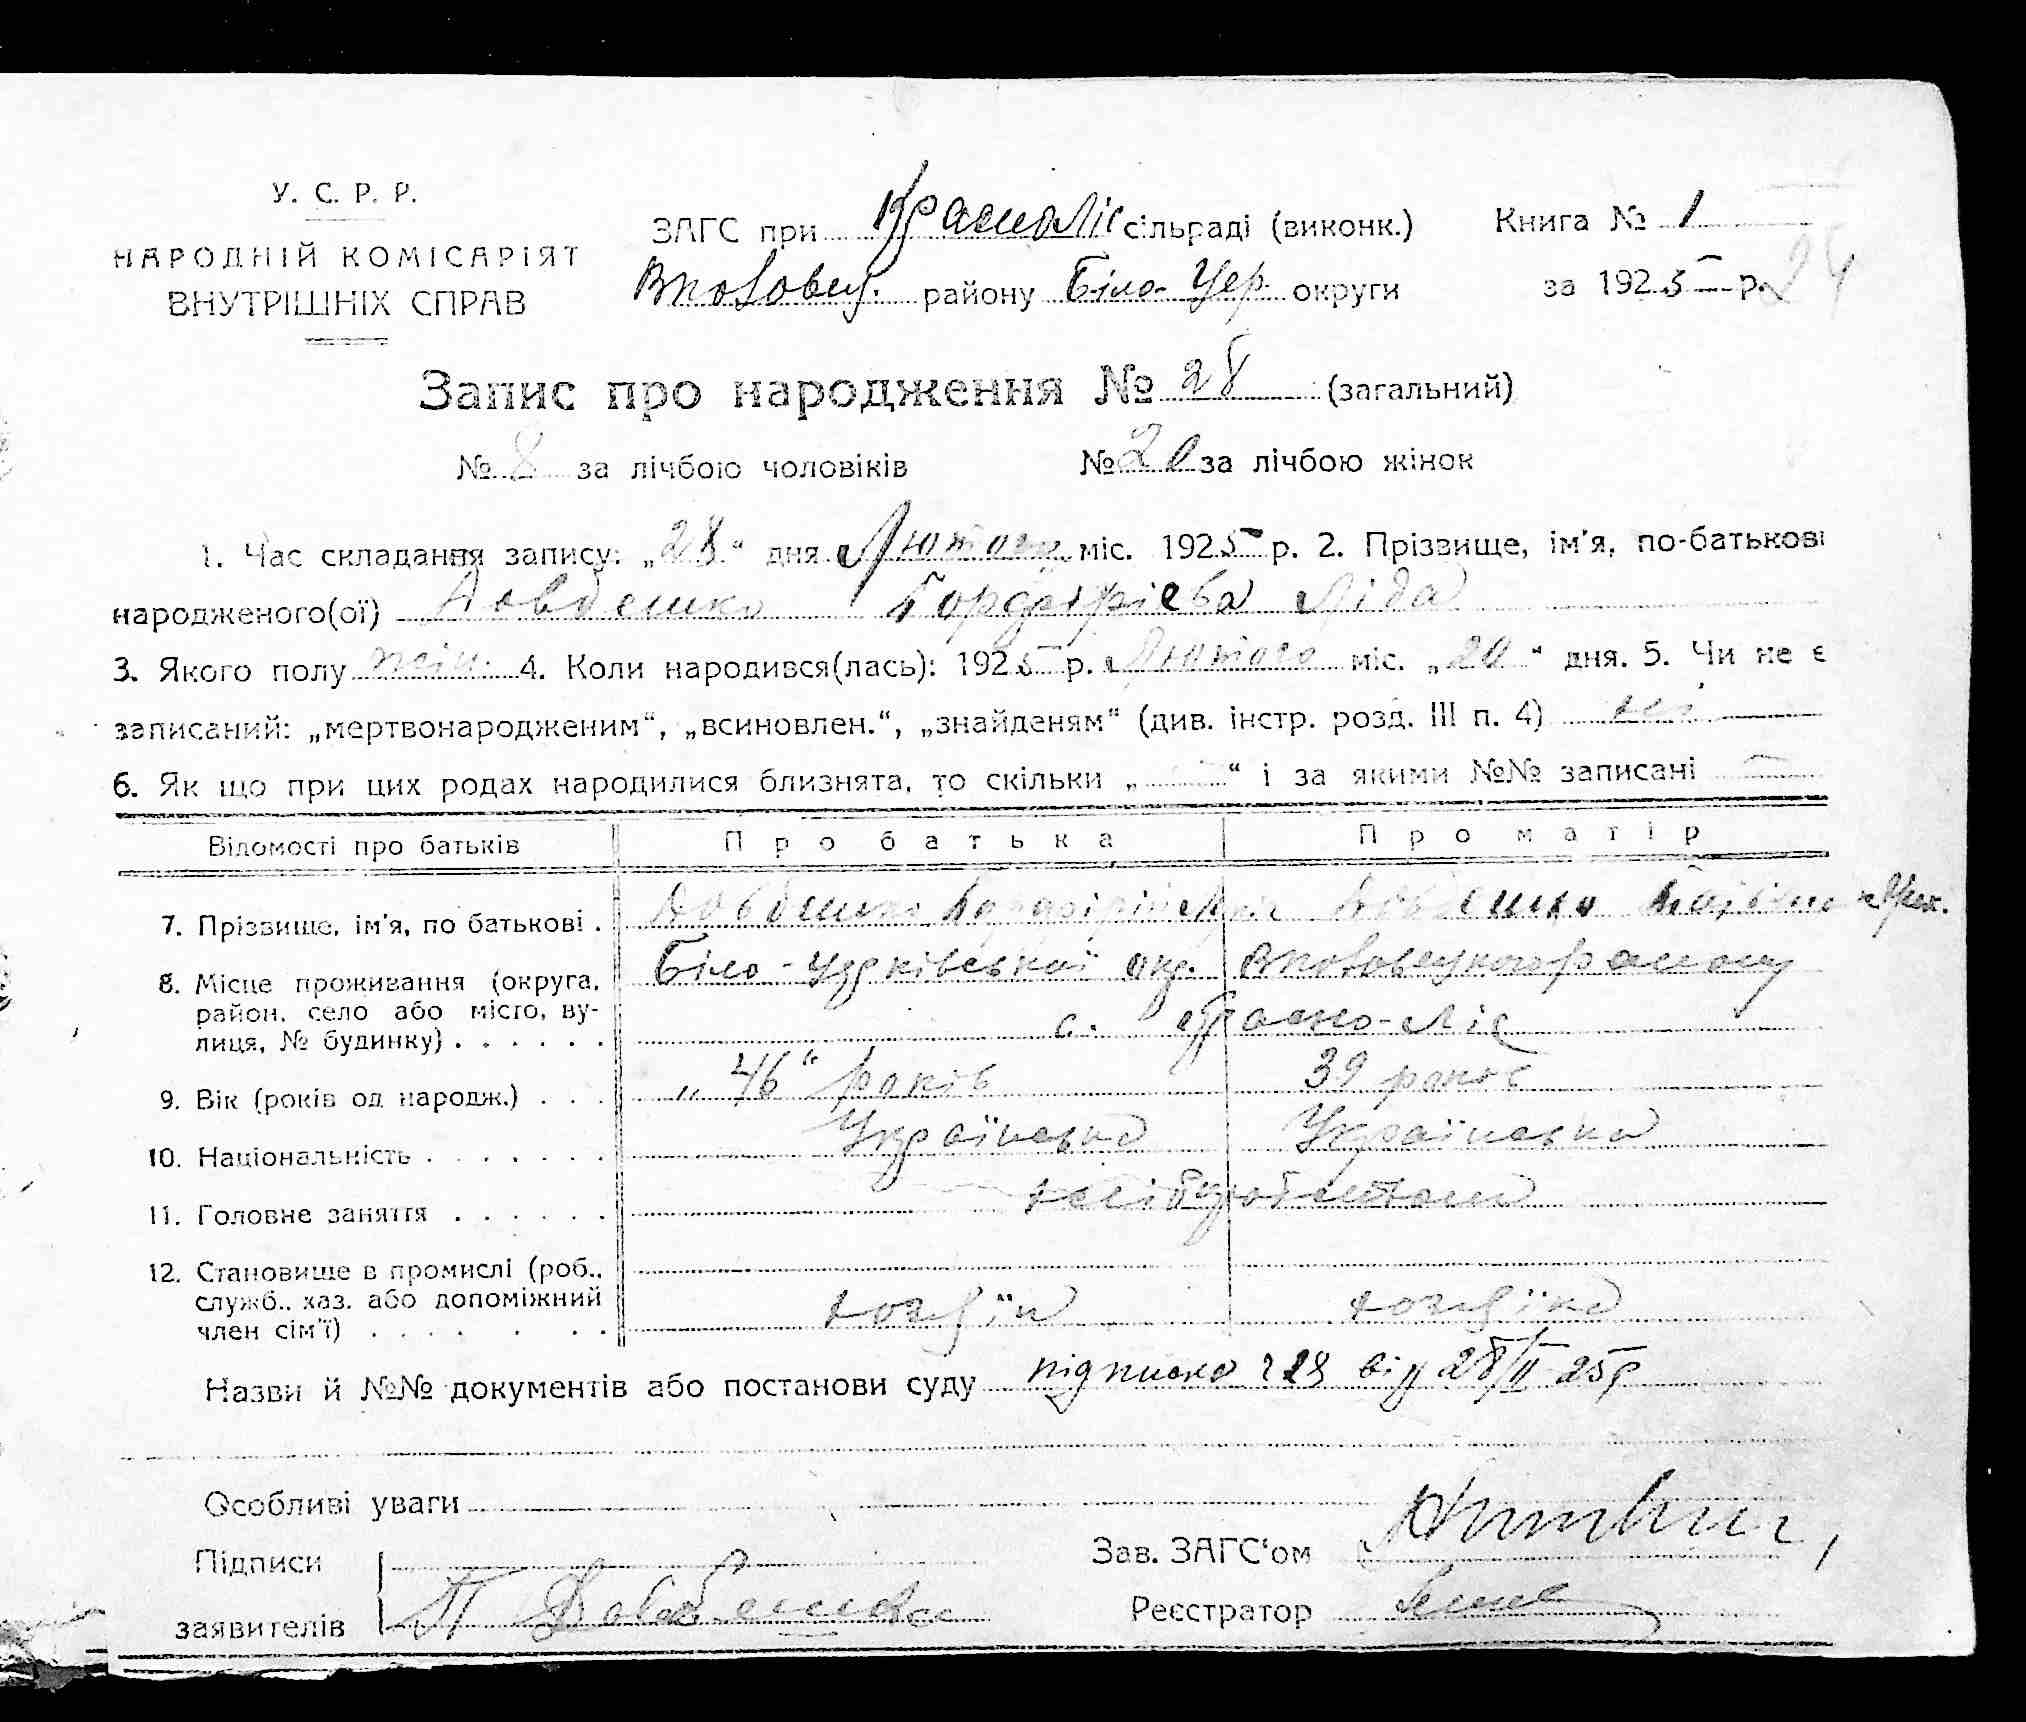 У. С. Р. Р.
НАРОДНІЙ КОМІСАРІЯТ
ВНУТРІШНІХ СПРАВ
ЗАГС при Красноліс сільраді (виконк.)
району Біло-Цер округи
Книга № 1
за 1925 р. 24
Запис про народження № 28 (загальний)
№ 8 за лічбою чоловіків № 20 за лічбою жінок
1. Час складання запису: „28“ дня Лютого міс. 1925 р. 2. Прізвище, ім’я, по-батькові
народженого(ої) Довбешко Ліда
3. Якого полу жін. 4. Коли народився(лась): 1925 р. Лютого міс. „20“ дня. 5. Чи не є
записаний: „мертвонародженим“, „всиновлен.“, „знайденям“ (див. інстр. розд. III п. 4) ні
6. Як що при цих родах народилися близнята, то скільки „ “ і за якими №№ записані —
Відомості про батьків Про батька Про матір
7. Прізвище, ім’я, по батькові . Довбешко Довбешко
8. Місце проживання (округа, район, село або місто, ву-лиця, № будинку) . . . . . . Біло-Церківської окр.
с. Красно-Ліс
9. Вік (років од народж.) . . . „46“ років 39 років
10. Національність . . . . . . . Українська Українська
11. Головне заняття . . . . . .
12. Становище в промислі (роб., служб., хаз. або допоміжний член сім’ї) . . . . . . . хозяїн хозяїка
Назви й №№ документів або постанови суду від 28/II 25р
Особливі уваги
Підписи
заявителів П Довбешко
Зав. ЗАГС‘ом
Реєстратор